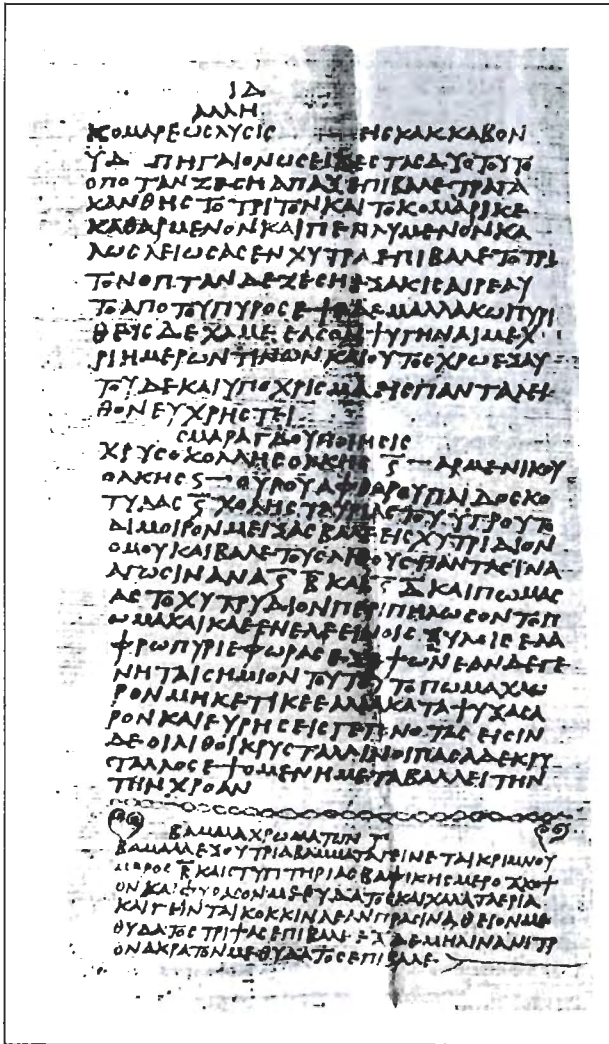 ΙΔ
ΑΛΛΗ
ΚΟΜΑΡΕΩΣ ΛΥΣΙΣ — ΕΙΣ ΚΑΚΚΑΒΟΝ
ΥΔ ΠΗΓΑΙΟΝ ΩΣΕΙ ΞΕΣΤΑΣ ΔΥΟ ΤΟΥΤΟ
ΟΠΟΤΑΝ ΖΕΣΗ ΑΠΑΞ ΕΠΙΒΑΛΕ ΤΡΑΓΑ
ΚΑΝΘΗΣ ΤΟ ΤΡΙΤΟΝ ΚΑΙ ΤΟ ΚΟΜΑΡΙ ΚΕ
ΚΑΘΑΡΜΕΝΟΝ ΚΑΙ ΠΕΠΛΥΜΕΝΟΝ ΚΑ
ΛΩΣ ΛΕΙΩΣΑΣ ΕΝ ΧΥΤΡΑ ΕΠΙΒΑΛΕ ΤΟ ΤΡΙ
ΤΟΝ ΟΠΤΑΝ ΔΕ ΖΕΣΗ ΕΞΑΚΙΣ ΑΙΡΕ ΑΥ
ΤΟ ΑΠΟ ΤΟΥ ΠΥΡΟΣ ΕΨΕ ΔΕ ΜΑΛΛΑΚΩ ΠΥΡΙ
ΘΕΙΣ ΔΕ ΧΑΜΕ ΕΑΣΟΝ ΨΥΓΗΝΑΙ ΜΕΧ
ΡΙ ΗΜΕΡΩΝ ΤΙΝΩΝ ΚΑΙ ΟΥΤΟΣ ΧΡΩ
ΤΟΥ ΔΕ ΚΑΙ ΥΠΟΧΡΙΣΜΑ
ΘΟΝ ΕΥΧΡΗΣΤΕΙ
ΣΜΑΡΑΓΔΟΥ ΠΟΙΗΣΙΣ
ΧΡΥΣΟΚΟΛΛΗΣ ΟΛΚΗΣ Ϛ — ΑΡΜΕΝΙΚΟΥ
ΟΛΚΗΣ Ϛ — ΟΥΡΟΥ ΑΦΘΟΡΟΥ ΠΑΙΔΟΣ ΚΟ
ΤΥΛΑΣ Ϛ ΧΟΛΗΣ ΤΑΥΡΙΑΣ ΤΟΥ ΥΓΡΟΥ ΤΟ
ΔΙΜΟΙΡΟΝ ΜΕΙΞΑΣ ΒΑΛΕ ΕΙΣ ΧΥΤΡΙΔΙΟΝ
ΟΜΟΥ ΚΑΙ ΒΑΛΕ ΤΟΥΣ ΛΙΘΟΥΣ ΠΑΝΤΑΣ ΙΝΑ
ΑΓΩΣΙΝ ΑΝΑ Ϛ Β ΚΑΙ Ϛ Δ ΚΑΙ ΠΩΜΑΣ
ΔΕ ΤΟ ΧΥΤΡΥΔΙΟΝ ΠΕΡΙΠΗΛΩΣΟΝ ΤΟ Π
ΩΜΑ ΚΑΙ ΚΑΕ ΕΝ ΕΛΕΕΙΝΟΙΣ ΞΥΛΟΙΣ ΕΛΑ
ΦΡΩ ΠΥΡΙ ΕΦ ΩΡΑΣ ΕΑΝ ΔΕ ΓΕ
ΝΗΤΑΙ ΣΗΜΙΟΝ ΤΟΥΤΟ ΤΟ ΠΩΜΑ ΧΛΩ
ΡΟΝ ΜΗΚΕΤΙ ΚΕΕ ΑΛΛΑ ΚΑΤΑΨΥΧΑΣ Α
ΡΟΝ ΚΑΙ ΕΥΡΗΣΕΙΣ ΓΕΓΕΝΟΤΑΣ ΕΙΣΙΝ
ΔΕ ΟΙ ΛΙΘΟΙ ΚΡΥΣΤΑΛΛΙΝΟΙ ΠΑΣΑ ΔΕ ΚΡΥ
ΣΤΑΛΛΟΣ ΕΨΟΜΕΝΗ ΜΕΤΑΒΑΛΛΕΙ ΤΗΝ
ΤΗΝ ΧΡΟΑΝ
ΒΑΜΜΑ ΧΡΩΜΑΤΩΝ Γ
ΒΑΜΜΑ ΤΡΙΑ ΒΑΜΜΑΤΑ ΓΕΙΝΕΤΑΙ ΚΡΙΜΝΟΥ
ΜΕΡΟΣ Β ΚΑΙ ΣΤΥΠΤΗΡΙΑΣ ΒΑΦΙΚΗΣ ΜΕΡΟΣ Α ΚΟΨ
ΟΝ ΚΑΙ ΜΕΘ ΥΔΑΤΟΣ ΚΑΙ ΧΑΛΑ ΤΑ ΕΡΙΑ
ΚΑΙ ΓΕΙΝΤΑΙ ΚΟΚΚΙΝΑ ΕΑΝ ΠΡΑΣΙΝΑ ΘΕΙΟΝ ΜΕ
Θ ΥΔΑΤΟΣ ΤΡΙΨΑΣ ΕΠΙΒΑΛΕ ΕΑ ΔΕ ΜΗΛΙΝΑ ΝΙΤΡ
ΟΝ ΑΚΡΑΤΟΝ ΜΕΘ ΥΔΑΤΟΣ ΕΠΙΒΑΛΕ